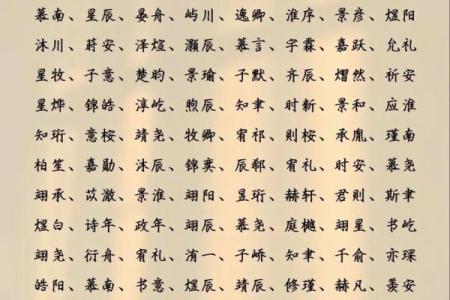 慕南、星辰、晏舟、屿川、逸卿、淮序、景彦、煜阳
沐川、莳安、泽煊、灏辰、慕言、宇霖、嘉跃、允礼
星牧、子意、楚昀、景瑜、子默、齐辰、熠然、祈安
星烨、锦皓、淳屹、煦辰、知聿、时新、景和、应淮
知珩、意桉、靖尧、牧卿、宥祁、则桉、承胤、瑾南
柏笙、嘉勋、沐辰、锦奕、辰郗、宥礼、时安、慕尧
翊承、苡澈、景淮、翊阳、昱珩、赫轩、君则、斯聿
煜白、诗年、政年、翊辰、慕尧、庭樾、翊星、书屹
翊尧、衍舟、宥礼、洧一、子峤、知聿、千俞、亦琛
皓阳、慕南、书意、煜辰、靖辰、修瑾、赫凡、羡安